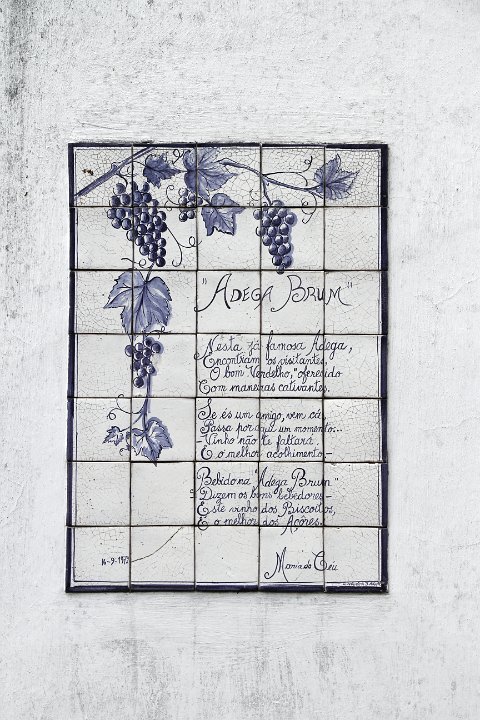 "ADEGA BRUM"
Nesta já famosa Adega,
Encontram os visitantes
O bom Verdelho, "oferecido
Com maneiras cativantes.
Se és um amigo, vem cá,
Passa por aqui um momento:-
-Vinho não te faltará,
E o melhor acolhimento.-
Bebido na "Adega Brum"
Dizem os bons bebedores-
Este vinho dos Biscoitos,
É o melhor dos Açores.
Maria do Céu